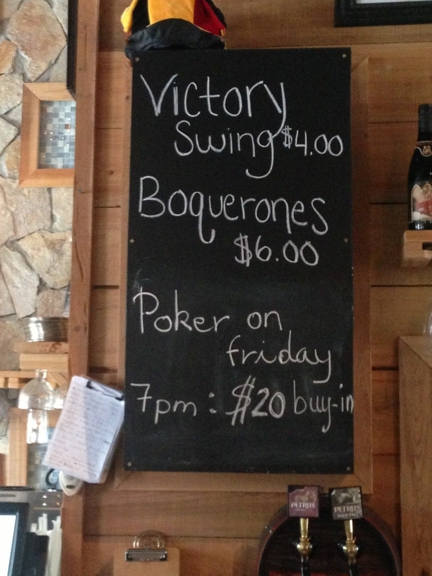 Victory
Swing $4.00
Boquerones
$6.00
Poker on
friday
7pm : $20 buy-in
PETRUS
PETRUS